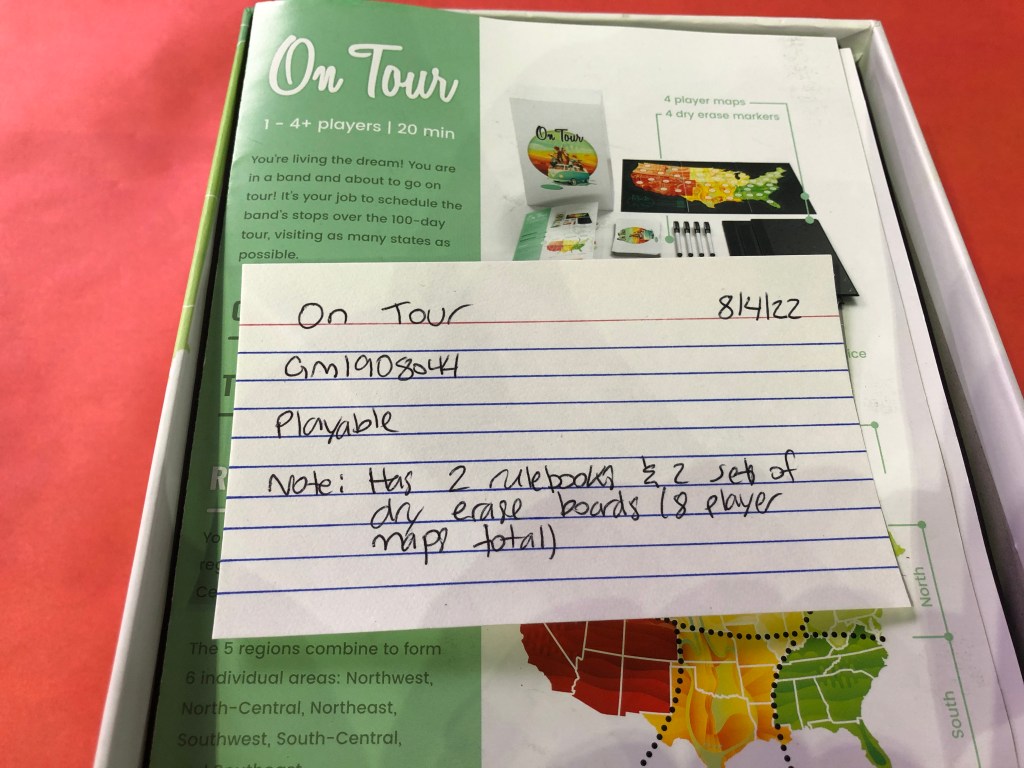 On Tour
1 - 4+ players | 20 min
You're living the dream! You are
in a band and about to go on
tour! It's your job to schedule the
band's stops over the 100-day
tour, visiting as many states as
possible.
4 player maps
4 dry erase markers
On Tour
On Tour 8/4/22
Playable
Note: Has 2 rulebooks & 2 sets of
dry erase boards (8 player
maps total)
North
South
The 5 regions combine to form
6 individual areas: Northwest,
North-Central, Northeast,
Southwest, South-Central,